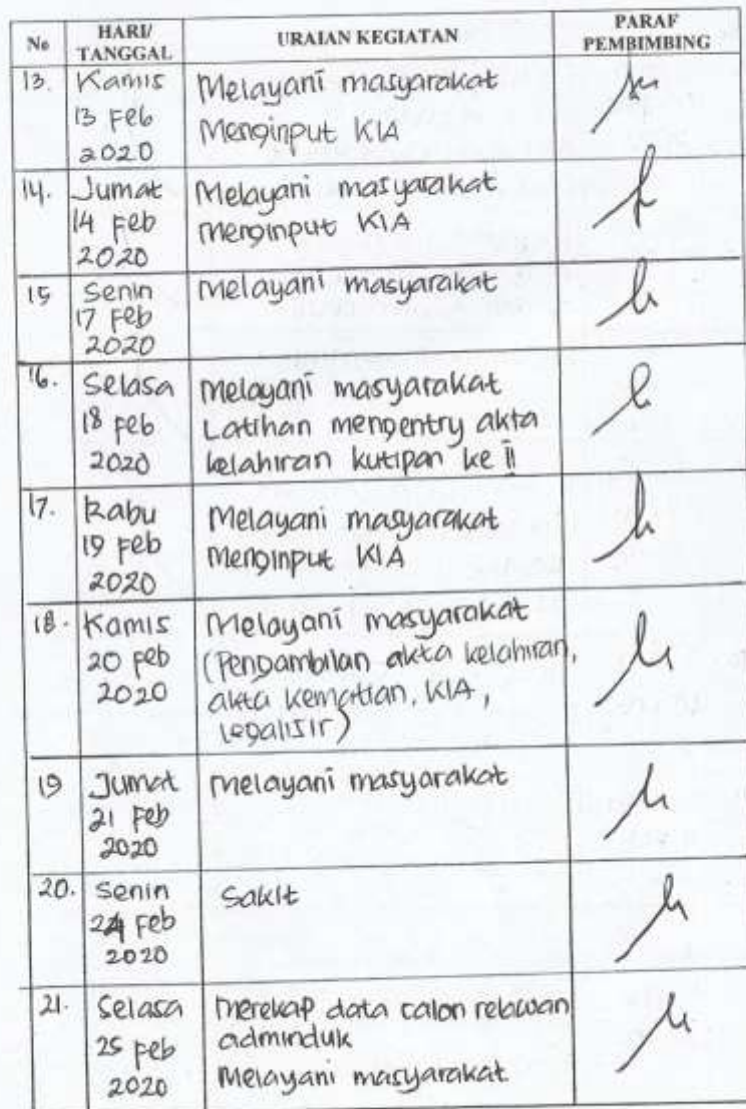 No HARI/ TANGGAL URAIAN KEGIATAN PARAF PEMBIMBING
13. Kamis 13 Feb 2020
Melayani masyarakat
Menginput KIA
14. Jumat 14 Feb 2020
Melayani masyarakat
Menginput KIA
15 Senin 17 Feb 2020
Melayani masyarakat
16. Selasa 18 Feb 2020
Melayani masyarakat
Latihan mengentry akta
kelahiran kutipan ke II
17. Rabu 19 Feb 2020
Melayani masyarakat
Menginput KIA
18. Kamis 20 Feb 2020
Melayani masyarakat
(Pengambilan akta kelahiran,
akta kematian, KIA,
legalisir)
19 Jumat 21 Feb 2020
Melayani masyarakat
20. Senin 24 Feb 2020
Sakit
21. Selasa 25 Feb 2020
Merekap data calon relawan
adminduk
Melayani masyarakat